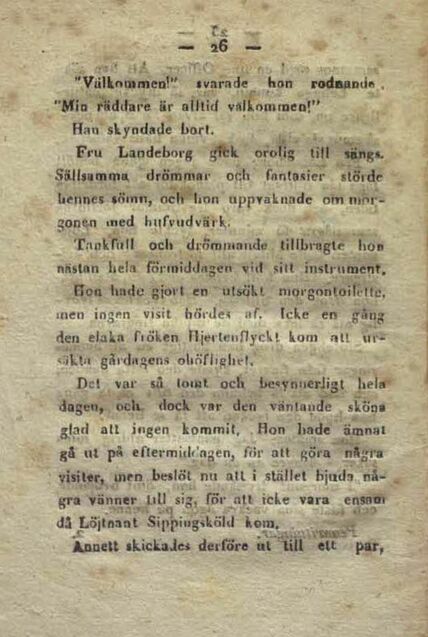 — 26 —
"Välkommen!" svarade hon rodnande.
"Min räddare är alltid välkommen!"
Han skyndade bort.
Fru Landeborg gick orolig till sängs.
Sällsamma drömmar och fantasier störde
hennes sömn, och hon uppvaknade om mor-
gonen med hufvudvärk.
Tankfull och drömmande tillbragte hon
nästan hela förmiddagen vid sitt instrument.
Hon hade gjort en utsökt morgontoilette,
men ingen visit hördes af. Icke en gång
den elaka fröken Hjertenflyckt kom att ur-
säkta gårdagens ohöflighet.
Det var så tomt och besynnerligt hela
dagen, och dock var den väntande sköna
glad att ingen kommit. Hon hade ämnat
gå ut på eftermiddagen, för att göra några
visiter, men beslöt nu att i stället bjuda nå-
gra vänner till sig, för att icke vara ensam
då Löjtnant Sippingsköld kom.
Annett skickades derföre ut till ett par,